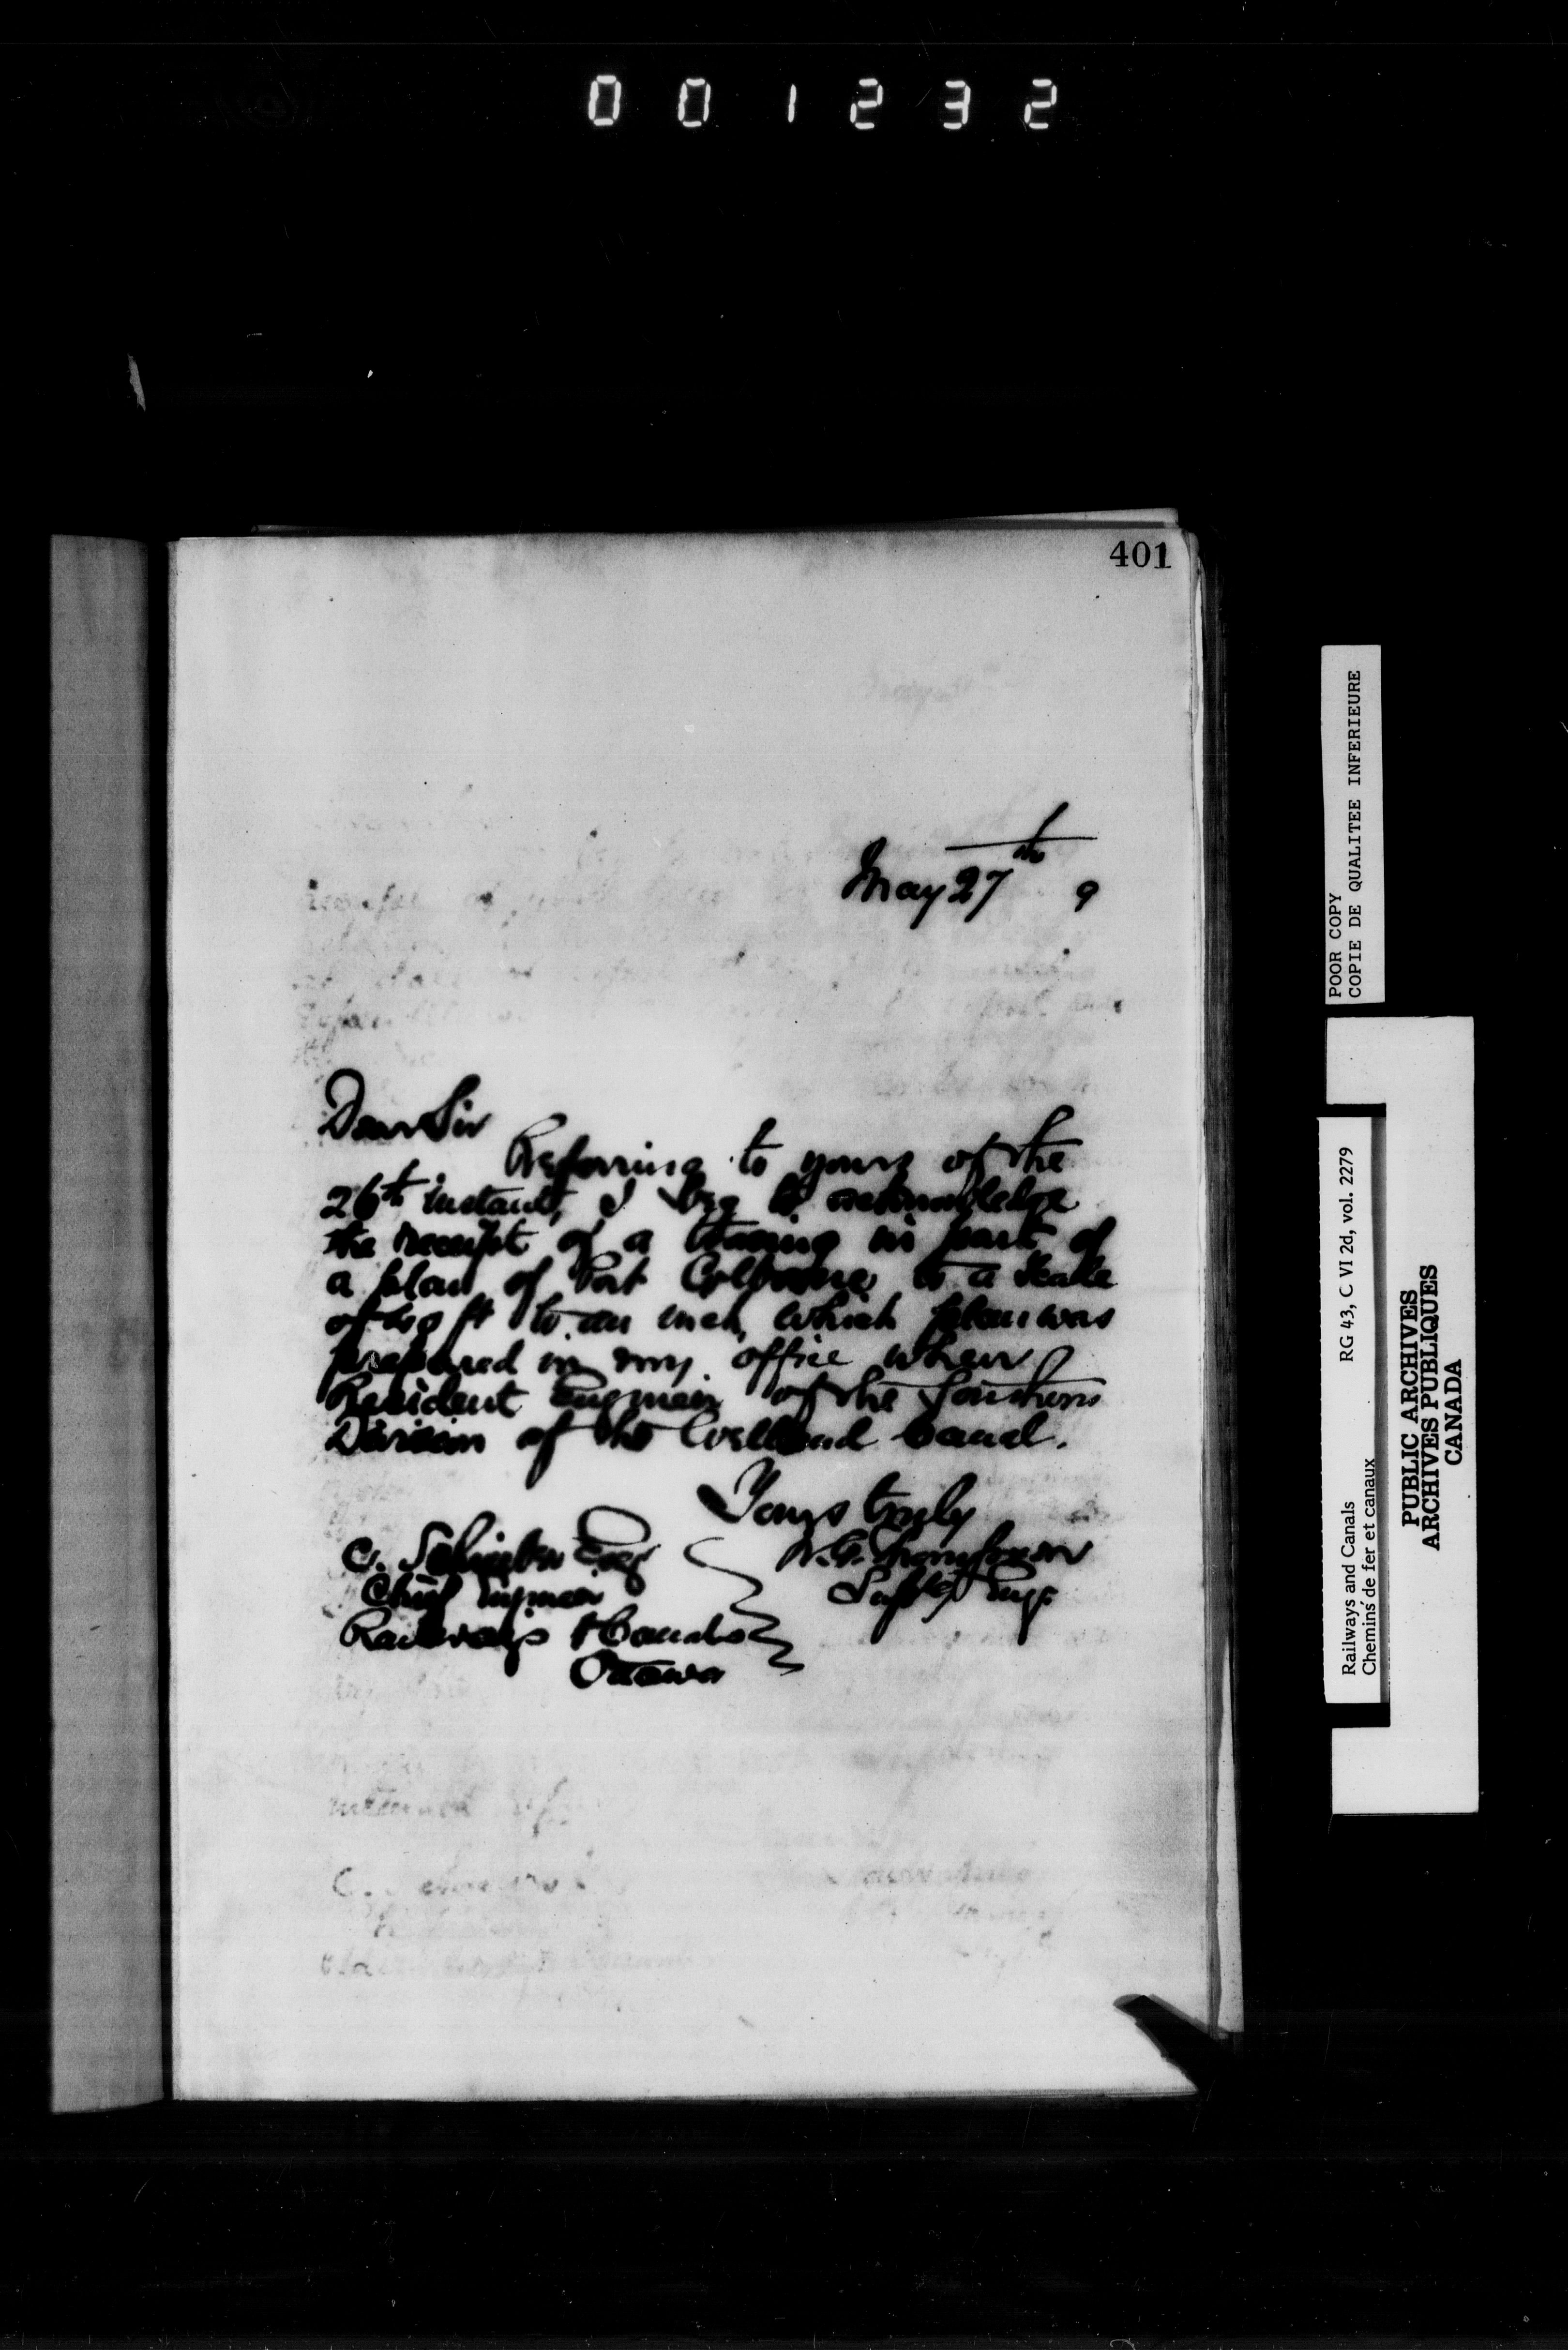 001232
401
May 27th 9
Dear Sir
Referring to yours of the
26th instant, I beg to acknowledge
the receipt of a tracing in part of
a plan of Port Colborne, to a scale
of ft to an inch, which plan was
prepared in my office when
Resident Engineer of the Southern
Division of the Welland Canal.
Yours truly
W.G. Thompson
Supt Engr
C. Schreiber Esq
Chief Engineer
Railways & Canals
Ottawa
POOR COPY
COPIE DE QUALITEE INFERIEURE
Railways and Canals RG 43, C VI 2d, vol. 2279
Chemins de fer et canaux
PUBLIC ARCHIVES
ARCHIVES PUBLIQUES
CANADA